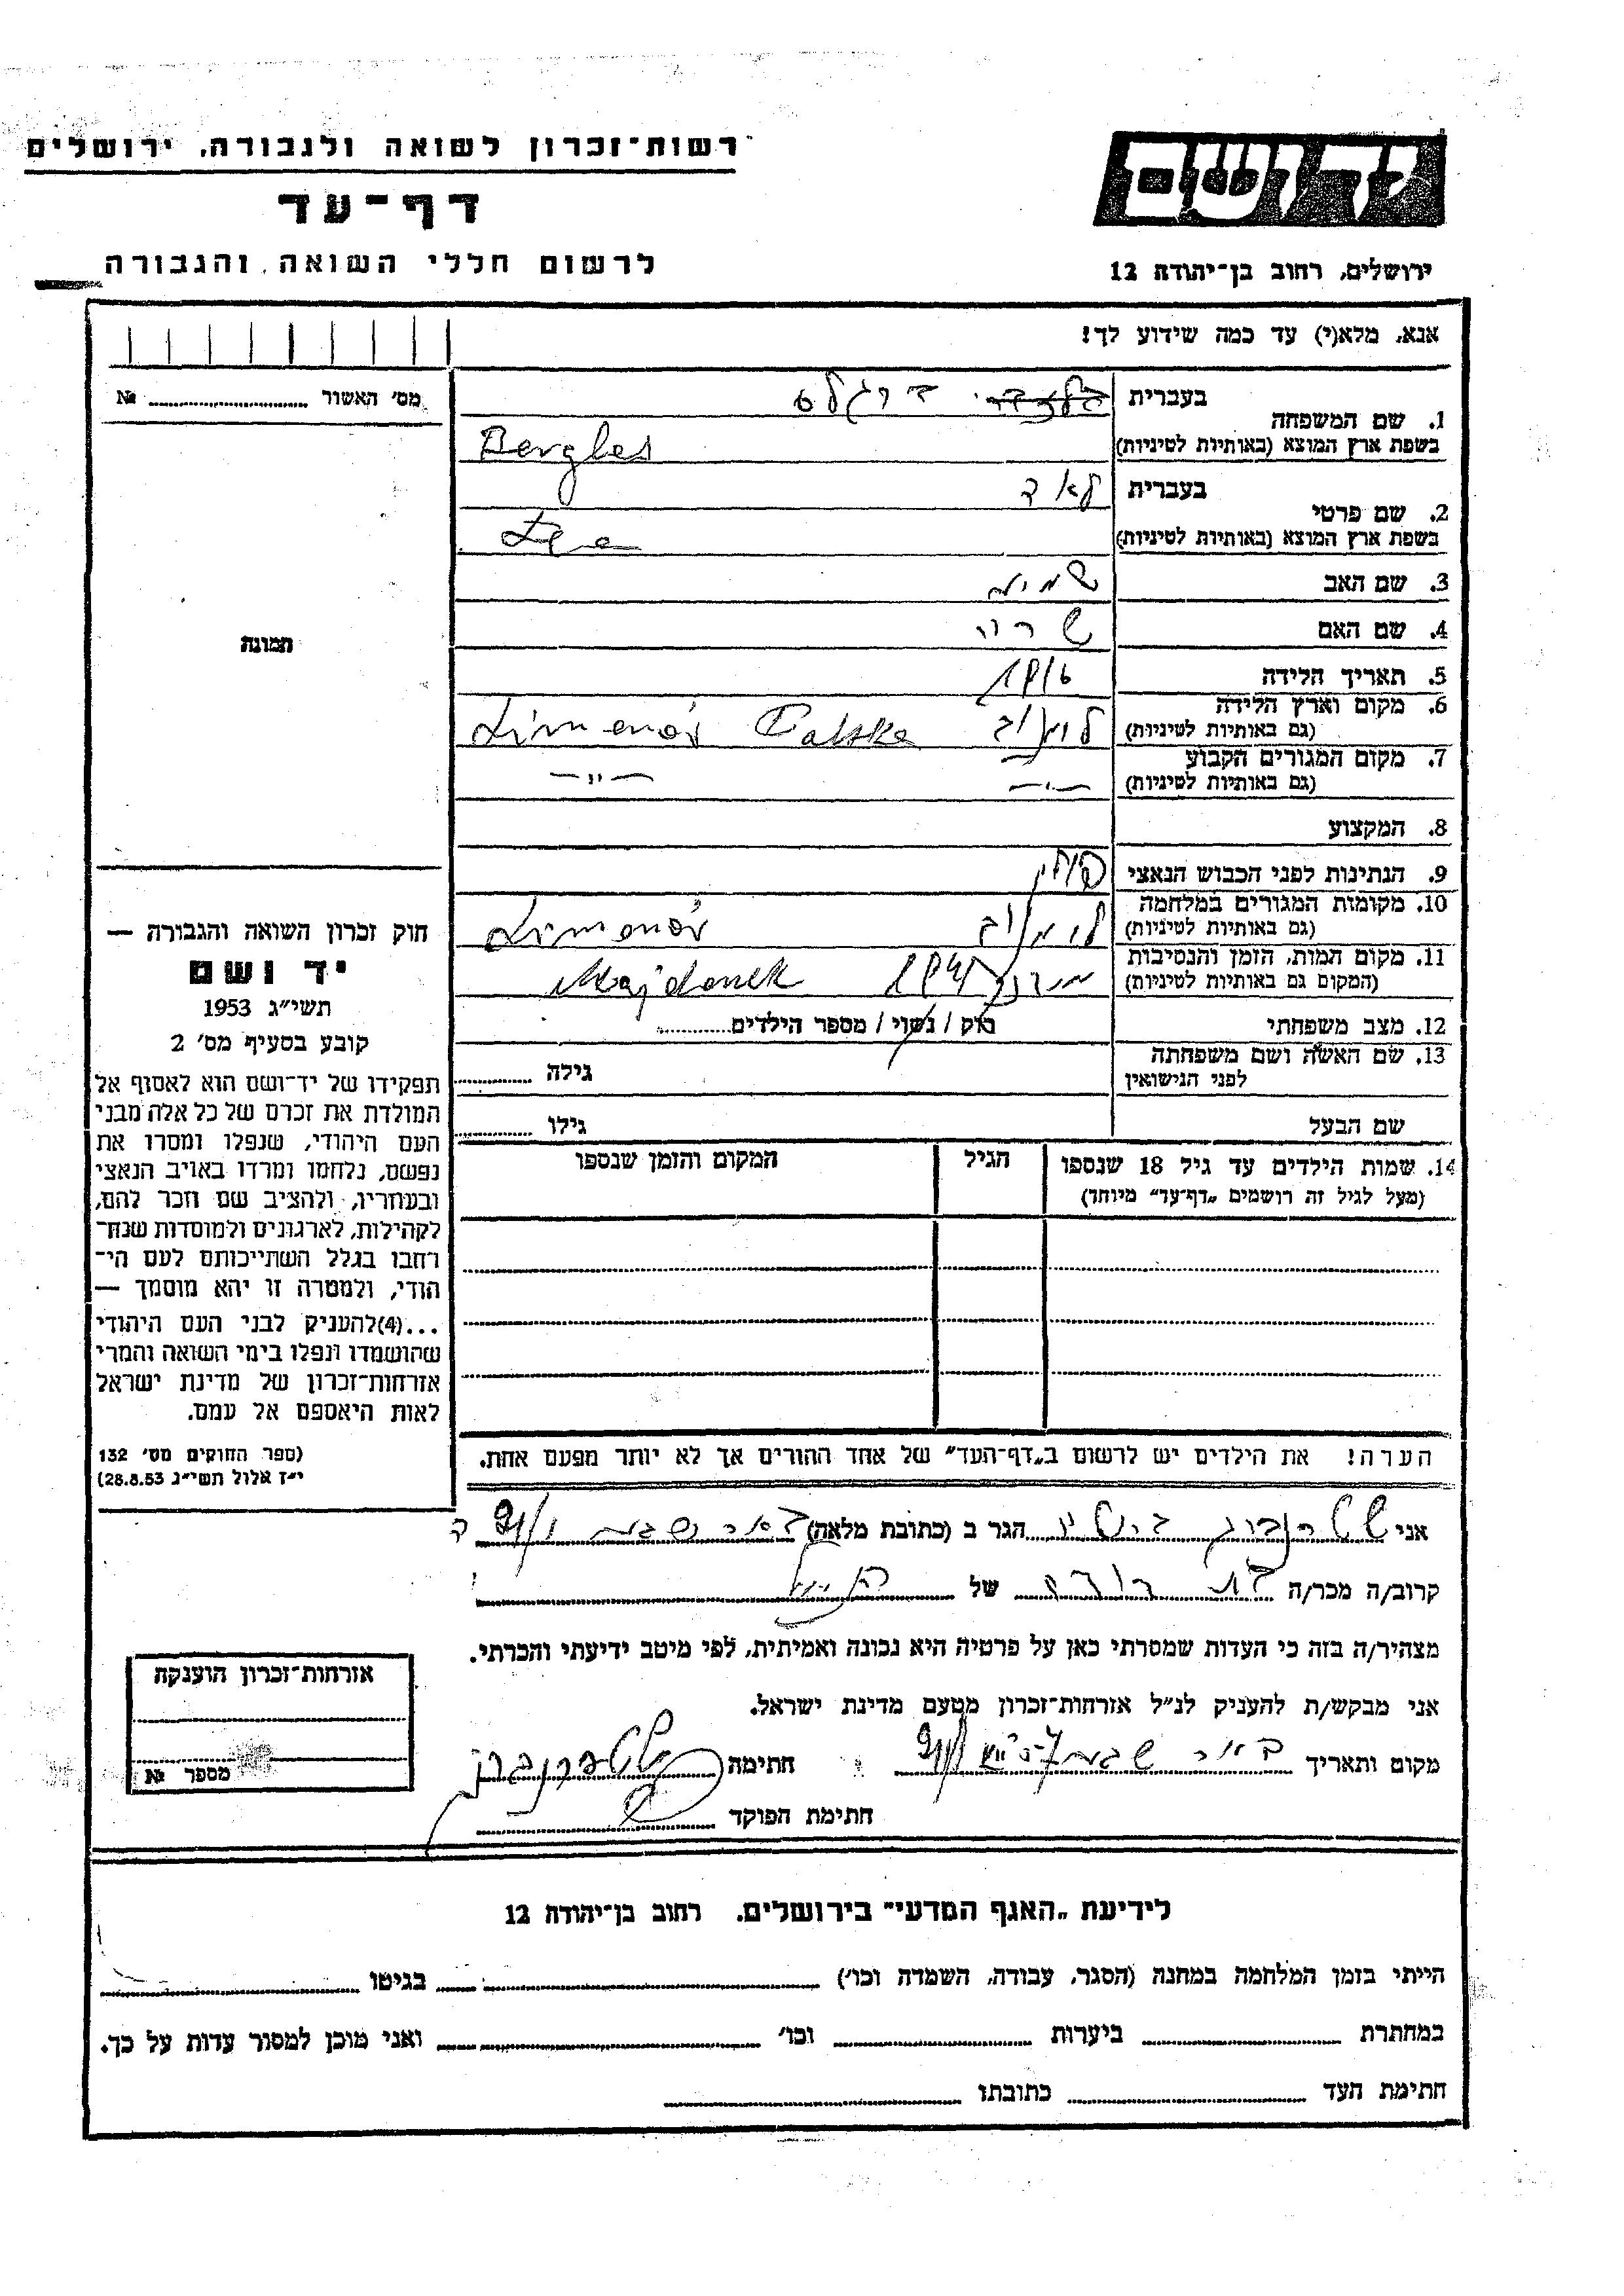 רשות־זכרון לשואה ולגבורה, ירושלים
דף־עד
לרשום חללי השואה והגבורה
יד ושם
ירושלים, רחוב בן־יהודה 12
אנא, מלא(י) עד כמה שידוע לך!
מס' האשור № ..........
1. שם המשפחה
בעברית
בשפת ארץ המוצא (באותיות לטיניות) Bergles
2. שם פרטי
בעברית לאה
בשפת ארץ המוצא (באותיות לטיניות) Lea
3. שם האב
4. שם האם שרה
5. תאריך הלידה 1916
6. מקום וארץ הלידה
(גם באותיות לטיניות) Limanów Polska
7. מקום המגורים הקבוע
(גם באותיות לטיניות) —״— —״—
8. המקצוע
9. הנתינות לפני הכבוש הנאצי פולין
10. מקומות המגורים במלחמה
(גם באותיות לטיניות) Limanów
11. מקום המות, הזמן והנסיבות
(המקום גם באותיות לטיניות) מידנק Majdanek
12. מצב משפחתי רוק / נשוי / מספר הילדים ..........
13. שם האשה ושם משפחתה
לפני הנישואין גילה ..........
שם הבעל גילו ..........
14. שמות הילדים עד גיל 18 שנספו
(מעל לגיל זה רושמים „דף־עד” מיוחד)
הגיל
המקום והזמן שנספו
תמונה
חוק זכרון השואה והגבורה —
יד ושם
תשי״ג 1953
קובע בסעיף מס' 2
תפקידו של יד־ושם הוא לאסוף אל
המולדת את זכרם של כל אלה מבני
העם היהודי, שנפלו ומסרו את
נפשם, נלחמו ומרדו באויב הנאצי
ובעוזריו, ולהציב שם וזכר להם,
לקהילות, לארגונים ולמוסדות שנח־
רחבו בגלל השתייכותם לעם הי־
הודי, ולמטרה זו יהא מוסמך —
...(4)להעניק לבני העם היהודי
שהושמדו ונפלו בימי השואה והמרי
אזרחות־זכרון של מדינת ישראל
לאות היאספם אל עמם.
(ספר החוקים מס' 132
י״ז אלול תשי״ג 28.8.53)
הערה! את הילדים יש לרשום ב„דף־העד” של אחד ההורים אך לא יותר מפעם אחת.
אני שטרנברג הגר ב (כתובת מלאה) באר שבע
קרוב/ה מכר/ה בת דודה של
מצהיר/ה בזה כי העדות שמסרתי כאן על פרטיה היא נכונה ואמיתית, לפי מיטב ידיעתי והכרתי.
אני מבקש/ת להעניק לנ״ל אזרחות־זכרון מטעם מדינת ישראל.
מקום ותאריך באר שבע חתימה שטרנברג
חתימת הפוקד
אזרחות־זכרון הוענקה
מספר №
לידיעת „האגף המדעי” בירושלים, רחוב בן־יהודה 12
הייתי בזמן המלחמה במחנה (הסגר, עבודה, השמדה וכו') .......... בגיטו ..........
במחתרת .......... ביערות .......... וכו' .......... ואני מוכן למסור עדות על כך.
חתימת העד .......... כתובתו ..........